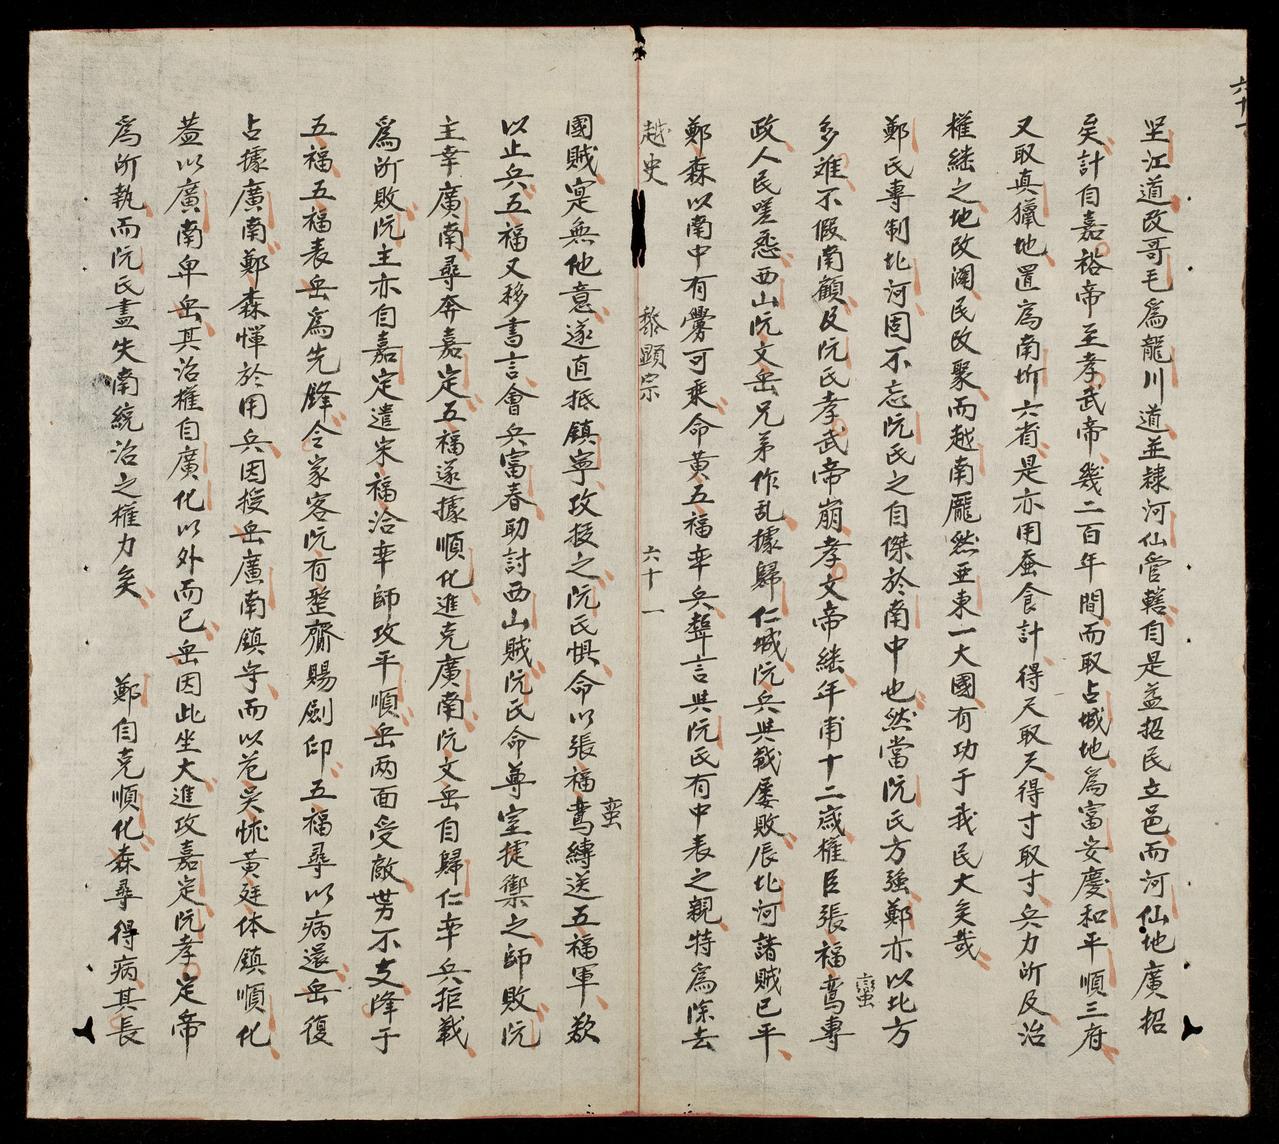 六十一
坚江道改哥毛爲龍川道並隸河仙管轄自是益招民立邑而河仙地廣招
矣計自嘉裕帝至孝武帝幾二百年間而取占城地爲富安慶和平順三府
又取真獵地置爲南圻六省是亦用蚕食計得尺取尺得寸取寸兵力所及治
權継之地改闢民改聚而越南龐然亜東一大國有功于我民大矣哉
鄭氏專制北河固不忘阮氏之自傑於南中也然當阮氏方強鄭亦以北方
多难不假南顧及阮氏孝武帝崩孝文帝継年甫十二歲權臣張福鸾專
蠻
政人民嗟怨西山阮文岳兄弟作乱據歸仁城阮兵與戦屡敗辰北河諸賊已平
鄭森以南中有釁可乘命黄五福率兵聲言與阮氏有中表之親特爲除去
越史 黎顯宗 六十一
國賊寔無他意遂直抵鎮寧攻拔之阮氏惧命以張福鸾縛送五福軍欵
蛮
以止兵五福又移書言會兵富春助討西山賊阮氏命尊室㨗禦之師敗阮
主幸廣南尋奔嘉定五福遂據順化進克廣南阮文岳自歸仁率兵拒戦
爲所敗阮主亦自嘉定遣宋福洽率師攻平順岳两面受敵势不支降于
五福五福表岳爲先鋒令家客阮有整齎賜劍印五福尋以病還岳復
占據廣南鄭森惮於用兵因授岳廣南鎮守而以范吴怵黄廷体鎮順化
盖以廣南卑岳其治權自廣化以外而已岳因此坐大進攻嘉定阮孝定帝
爲所執而阮氏盡失南統治之權力矣 鄭自克順化森尋得病其長